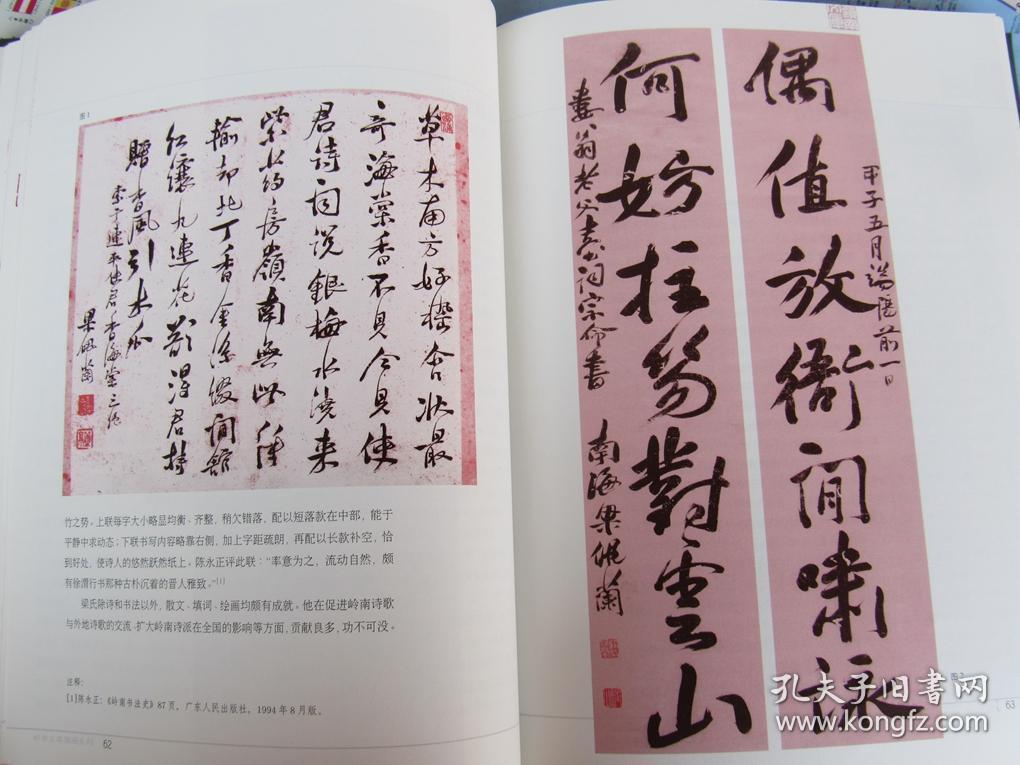 图1
草木南方好嵇含狀最
奇海棠香不見今見使
君詩詞說銀梅水澆来
房嶺南無此種
輸却此丁香金
九連花影淂君持
贈香風引木瓜
連平使君香海棠三
梁佩蘭
竹之势。上联每字大小略显均衡、齐整,稍欠错落,配以短落款在中部,能于
平静中求动态;下联书写内容略靠右侧,加上字距疏朗,再配以长款补空,恰
到好处,使诗人的悠然跃然纸上。陈永正评此联:“率意为之,流动自然,颇
有徐渭行书那种古朴沉着的晋人雅致。”[1]
梁氏除诗和书法以外,散文、填词、绘画均颇有成就。他在促进岭南诗歌
与外地诗歌的交流、扩大岭南诗派在全国的影响等方面,贡献良多,功不可没。
注释:
[1]陈永正:《岭南书法史》87页,广东人民出版社,1994年8月版。
62
偶值放衙間嘯詠
甲子五月端陽前一日
何妨拄笏對雲山
翁老父臺詞宗命書
南海梁佩蘭
图2
63
孔夫子旧书网
www.kongfz.com